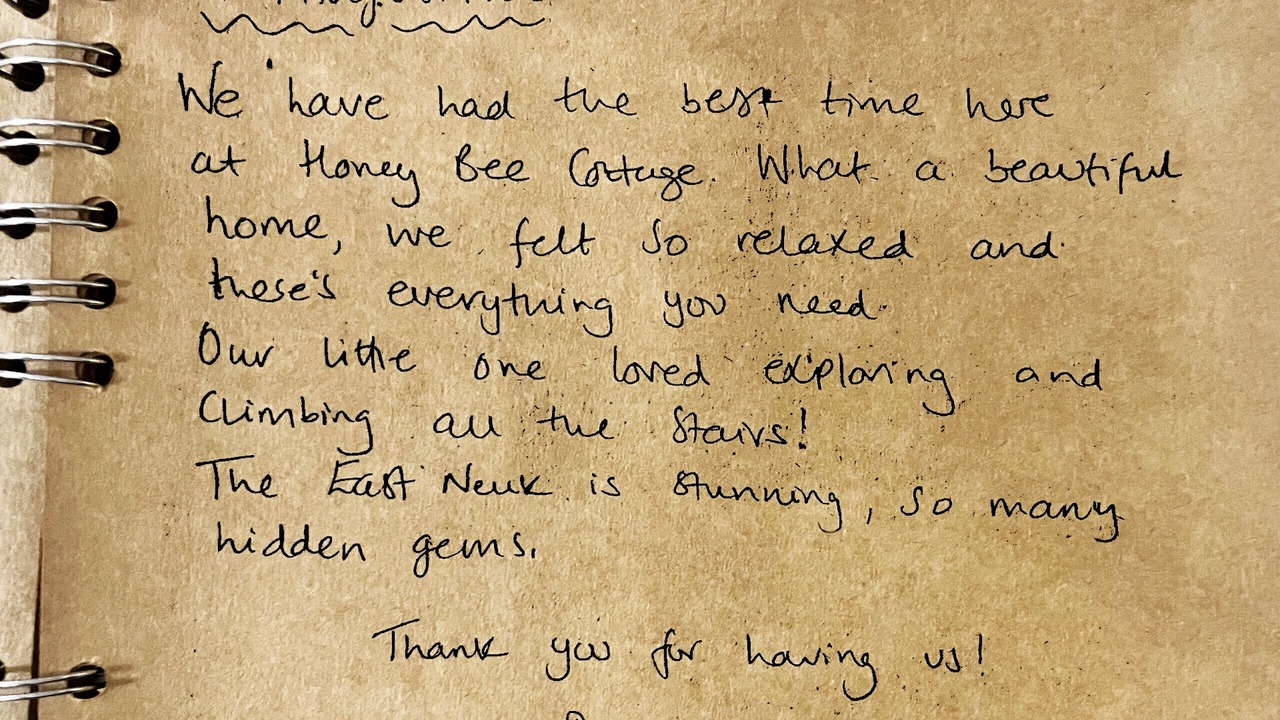 We have had the best time here
at Honey Bee Cottage. What a beautiful
home, we felt so relaxed and
there's everything you need.
Our little one loved exploring and
climbing all the stairs!
The East Neuk is stunning, so many
hidden gems.
Thank you for having us!